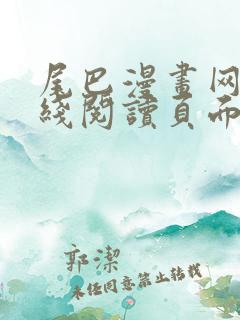 尾巴漫畫网
綫閱讀頁而
郭潔
未任同意禁止转载